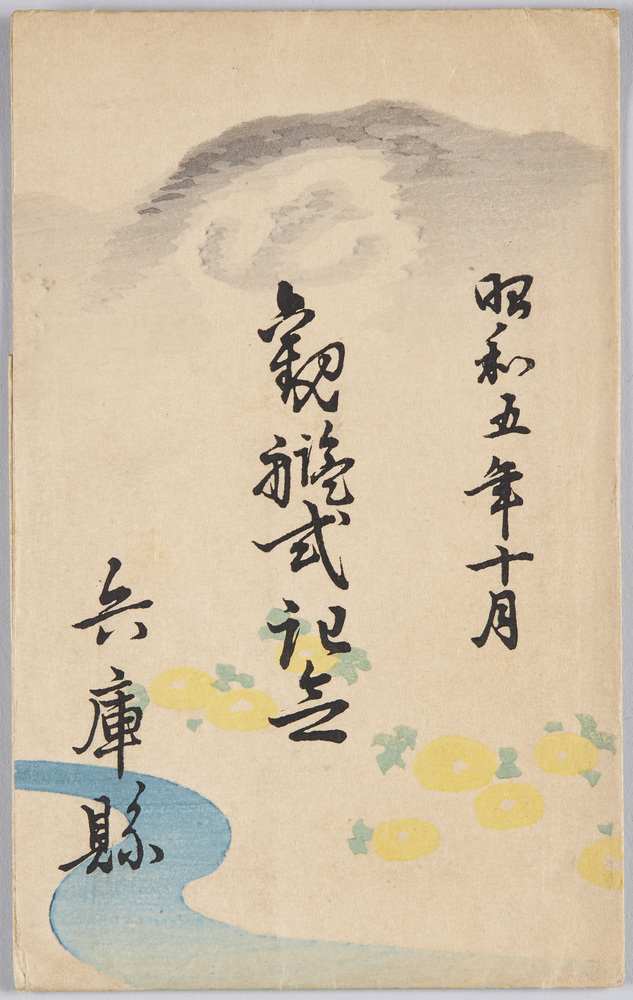 昭和五年十月
觀艦式記念
兵庫縣